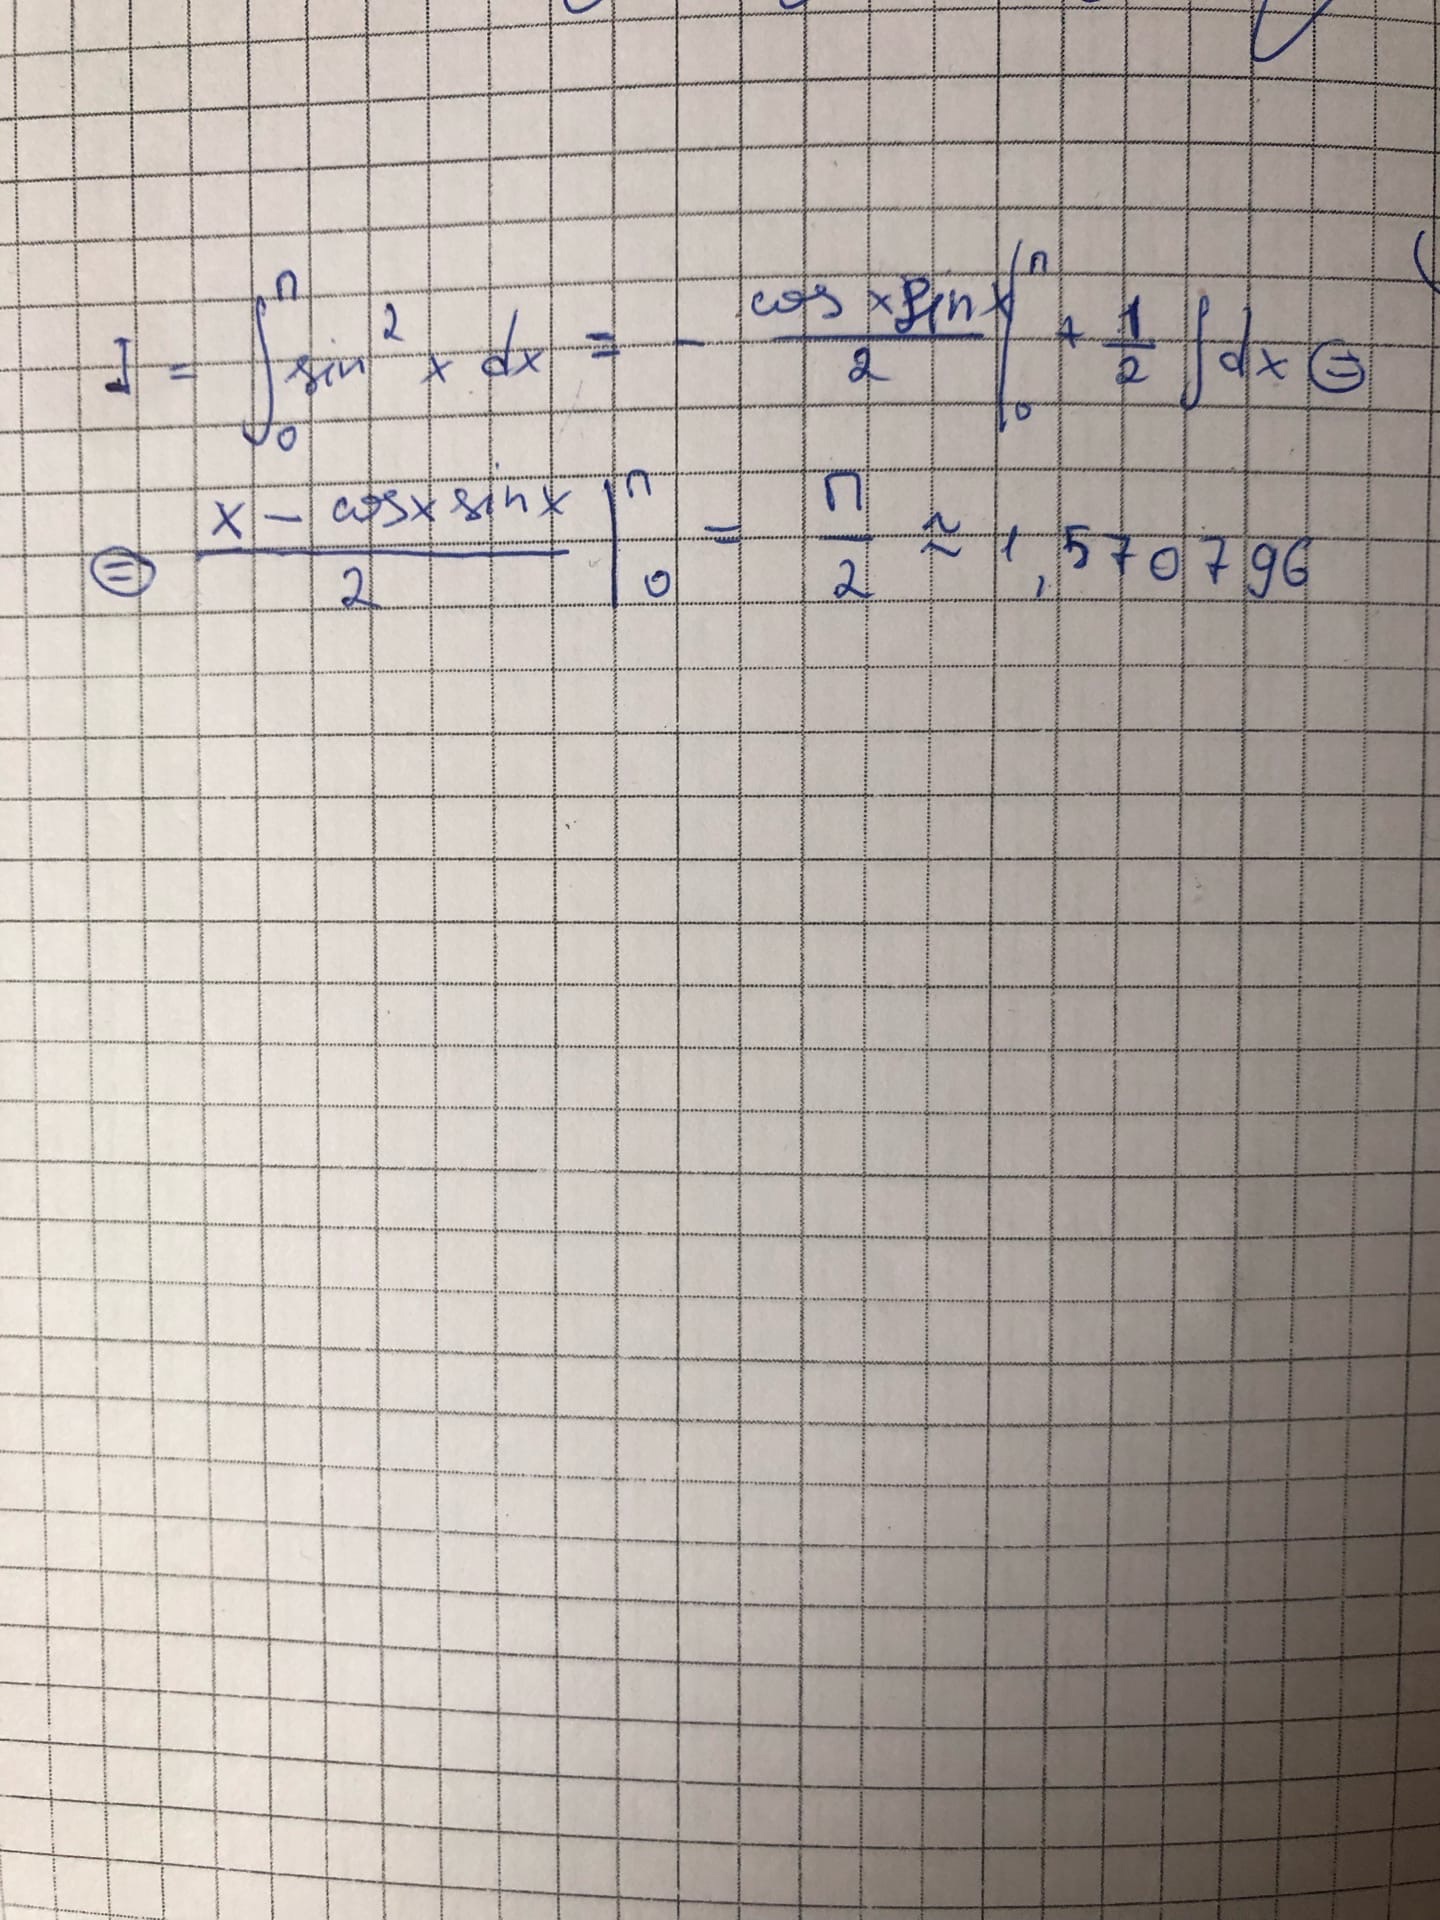 I = ∫₀^π sin² x dx = - (cos x sin x)/2 |₀^π + 1/2 ∫ dx ⊜
⊜ (x - cos x sin x)/2 |₀^π = π/2 ≈ 1,570796